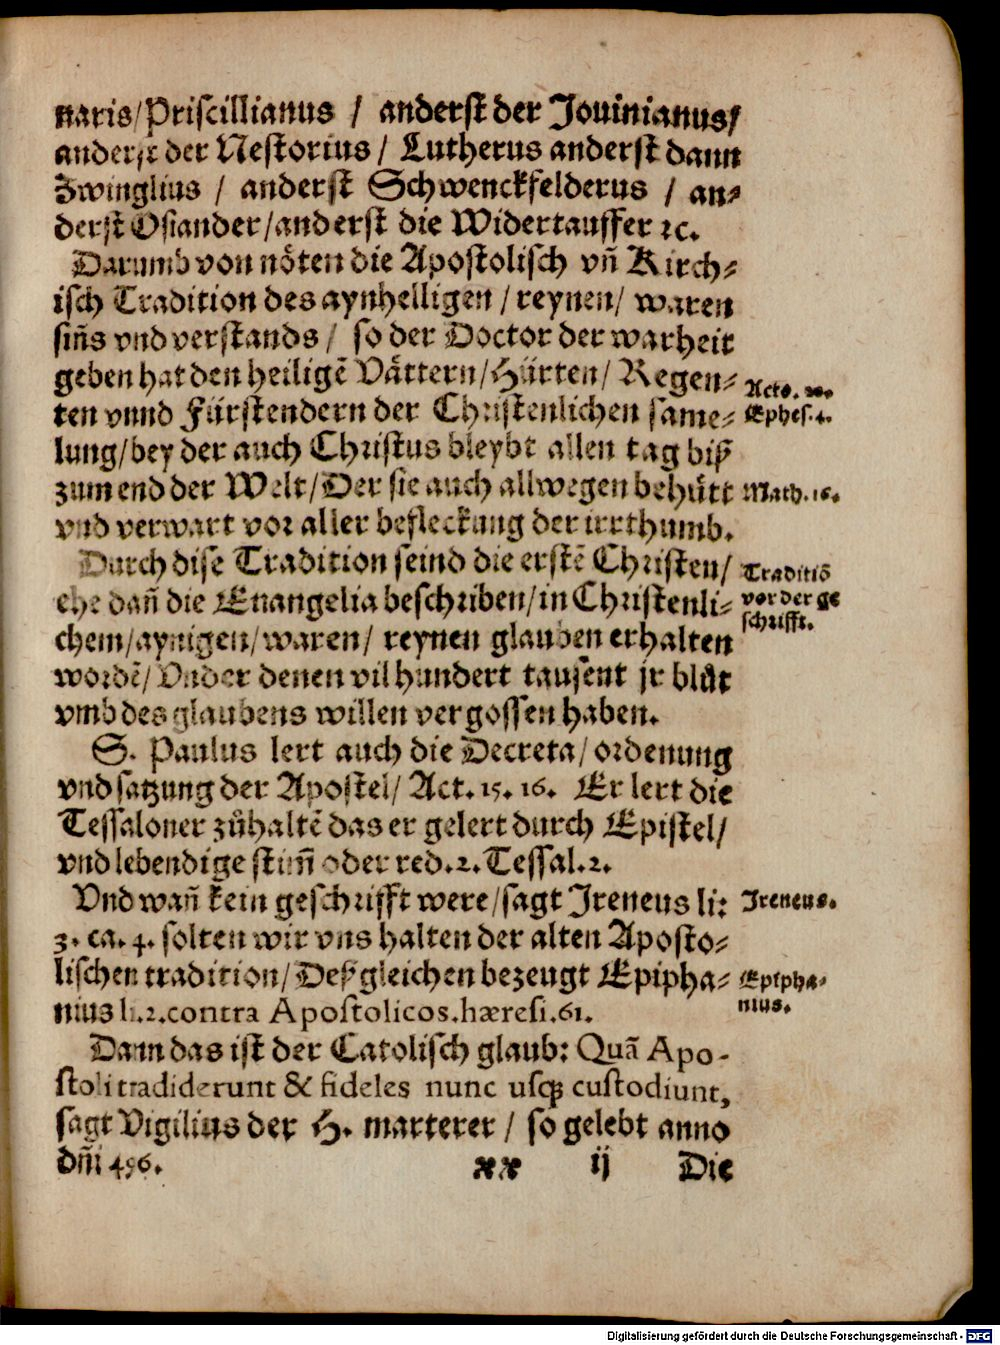 naris/Priscillianus / anderst der Jouinianus/
anderst der Nestorius / Lutherus anderst dann
Zwinglius / anderst Schwenckfelderus / an-
derst Osiander/anderst die Widertauffer ꝛc.
Darumb von nöten die Apostolisch vñ Kirch-
isch Tradition des aynhelligen / reynen/ waren
siñs vnd verstands / so der Doctor der warheit
geben hat den heiligẽ Vättern/Hürten/ Regen-
Acto. 20.
ten vnnd Fürstendern der Christenlichen same-
Ephes. 4.
lung/bey der auch Christus bleybt allen tag biß
zum end der Welt/Der sie auch allwegen behütt
Math. 16.
vnd verwart vor aller befleckung der irrthumb.
Durch dise Tradition seind die erstẽ Christen/
Traditiõ
ehe dañ die Euangelia beschriben/in Christenli-
vor der ge
chem/aynigen/waren/ reynen glauben erhalten
schrifft.
wordẽ/ Vnder denen vil hundert tausent jr blůt
vmb des glaubens willen vergossen haben.
S. Paulus lert auch die Decreta/ ordenung
vnd satzung der Apostel/ Act. 15. 16. Er lert die
Tessaloner zůhaltẽ das er gelert durch Epistel/
vnd lebendige stim̃ oder red. 2. Tessal. 2.
Vnd wañ kein geschrifft were/sagt Ireneus li:
Ireneus.
3. ca. 4. solten wir vns halten der alten Aposto-
lischen tradition/Deßgleichen bezeugt Epipha-
Epipha-
nius li.2.contra Apostolicos.hæresi.61.
nius.
Dann das ist der Catolisch glaub: Quã Apo-
stoli tradiderunt & fideles nunc usqꝫ custodiunt,
sagt Vigilius der H. marterer / so gelebt anno
dñi 496.
xx ij Die
Digitalisierung gefördert durch die Deutsche Forschungsgemeinschaft - DFG